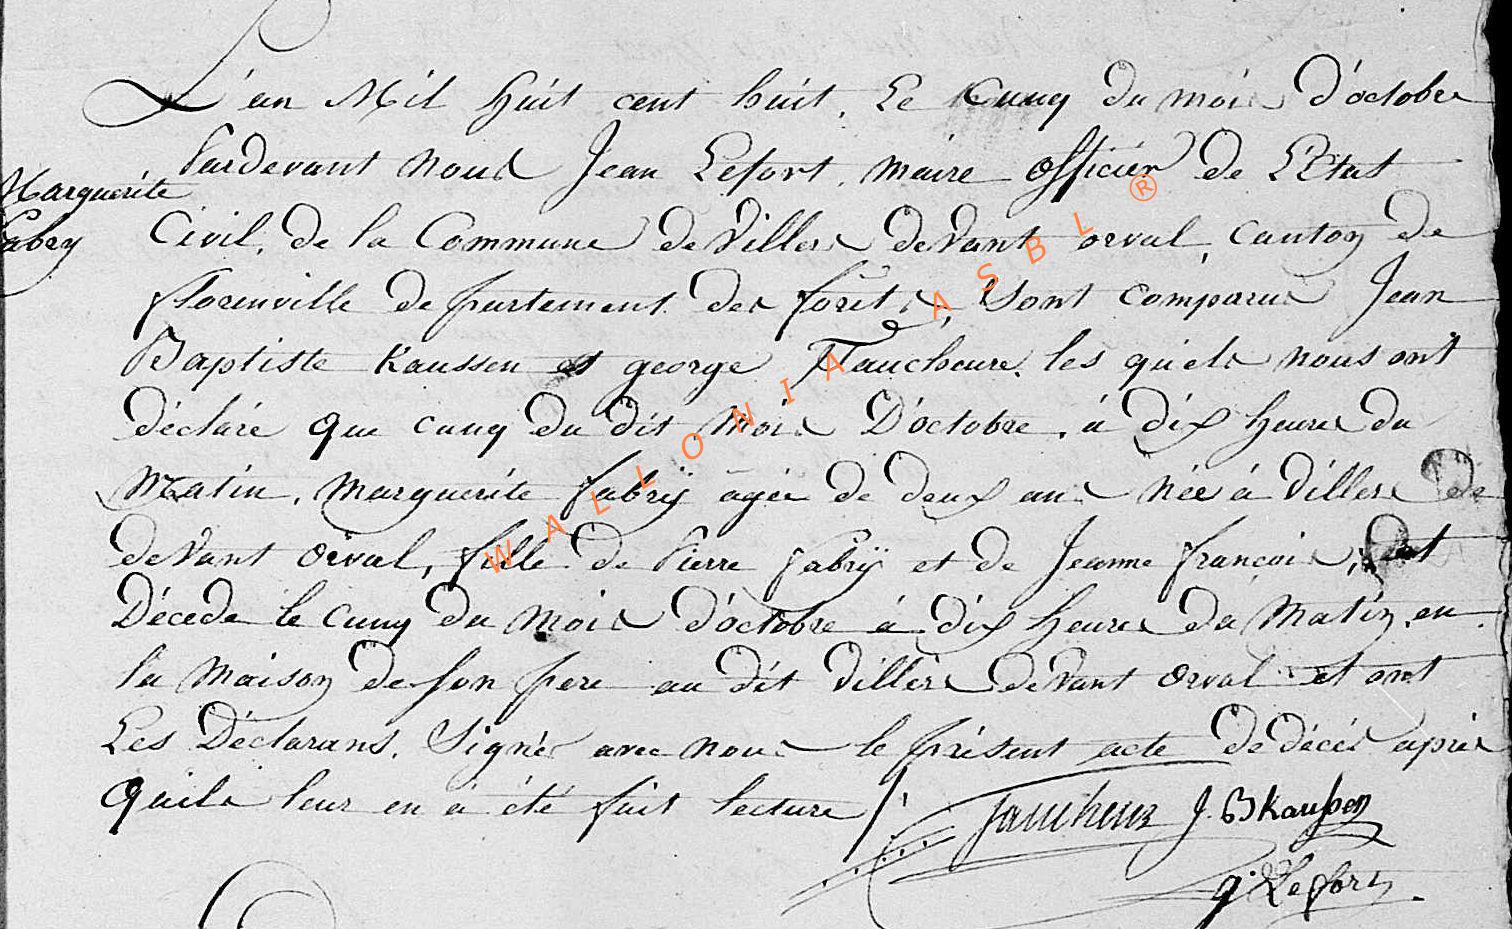 L'an Mil huit cent huit, Le cunq du mois d'octobre
Pardevant nous Jean Lefort, maire officier de L'Etat
Marguerite
fabry
Civil, de la Commune de Villers devant orval, canton de
florenville departement des forêts, Sont comparus Jean
Baptiste Kaussen et george Faucheure, les quels nous ont
déclaré que cunq du dit Mois D'octobre, à dix heures du
Matin, Marguerite fabrÿ agée de deux ans née à Villers
devant orval, fille de Pierre fabrÿ et de Jeanne françois, est
Décedé le cunq du mois d'octobre à dix heures du Matin, en
la maison de son pere au dit Villers devant orval et ont
Les Déclarans, Signés avec nous le présent acte de décés après
quils leur en à été fait lecture /
faucheur J. B Kaussen
J. Lefort
WALLONIA ASBL ®